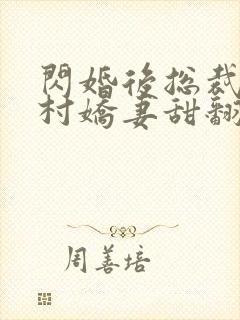 閃婚後總裁
村嬌妻甜翻
周善培